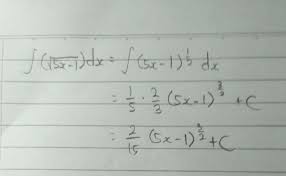 ∫(√5x-1)dx = ∫(5x-1)^½ dx
= 1/5 · 2/3 (5x-1)^3/2 + C
= 2/15 (5x-1)^3/2 + C